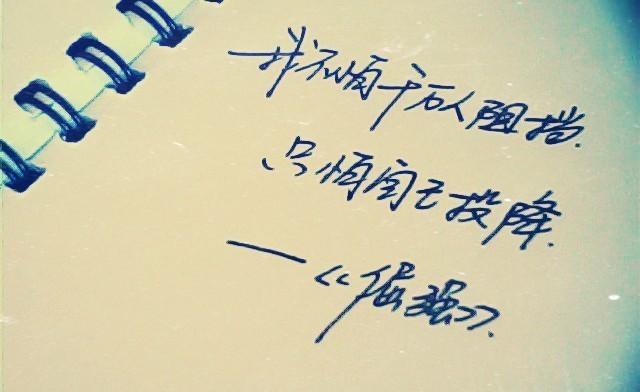 我不怕千万人阻挡.
只怕自己投降.
—《倔强》.